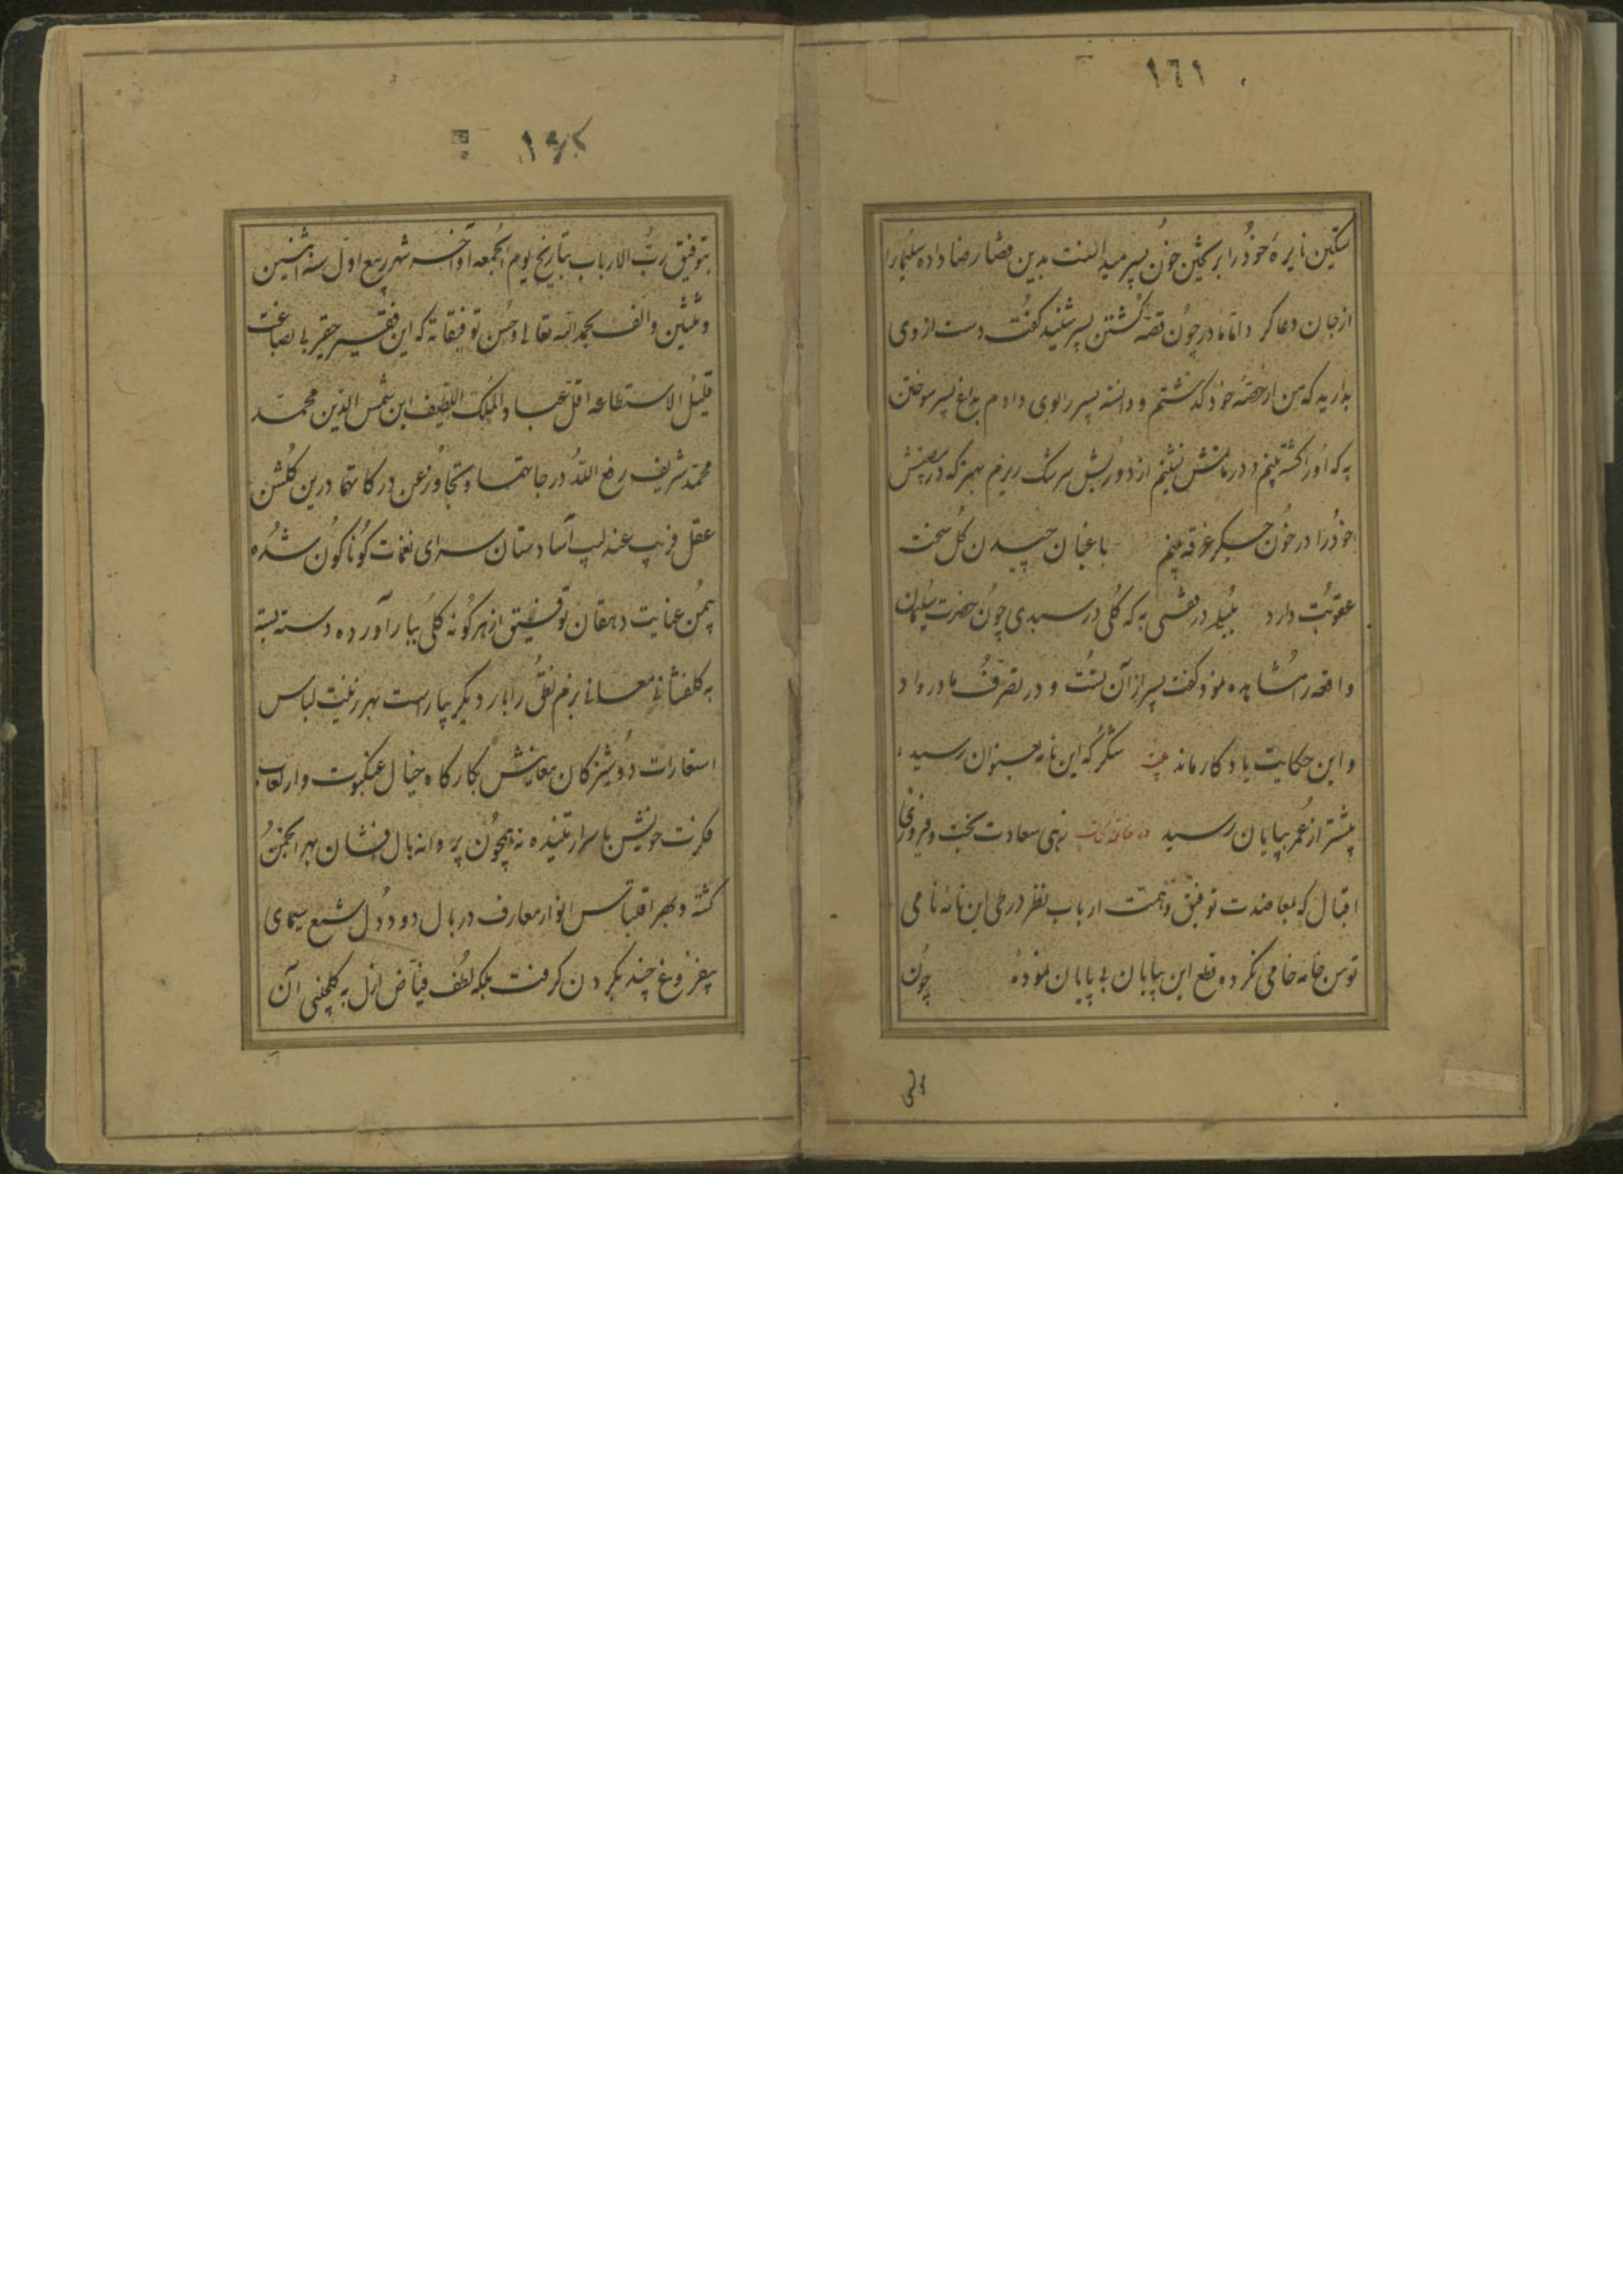 ١٦١
تسکین نایره خود را بر ریختن خون پسر میدانست بدین قضا رضا داده سلیمان را
از جان دعا کرد اما مادر چون قصه کشتن پسر شنید گفت دست از وی
بدارید که من از حصه خود گذشتم و دانسته پسر را بوی دادم بداغ پسر سوختن
به که او را کشته بینم و در ماتمش نشینم از دوریش سرشک ریزم بهتر که
خود را در خون جگر غرقه بینم باغبان چیدن گل سخت
عقوبت دارد بلبله در قفسی به که گلی در سبدی چون حضرت سلیمان
واقعه را مشاهده نمود گفت پسر از آن تست و در تصرف مادر داد
و این حکایت یادگار ماند بیت شکر که این نامه بعنوان رسید
پیشتر از عمر بپایان رسید در خاتمه کتاب زهی سعادت بخت و فیروزی
اقبال که بمعاضدت توفیق و همت ارباب نظر در طی این نامه نامی
توسن خامه خامی نکرده و قطع این بیابان بی پایان نموده چون
١٦٢
بتوفیق رب الارباب بتاریخ یوم الجمعه اواخر شهر ربیع اول سنه اثنین
و ثلثین و الف بحمد الله تعالی و حسن توفیقاته که این فقیر حقیر بی بضاعت
قلیل الاستطاعه اقل عباد الملک اللطیف ابن شمس الدین محمد
محمد شریف رفع الله درجاتهما و تجاوز عن درکاتهما درین گلشن
عقل فریب عندلیب آسا دستان سرای نغمات گوناگون شده
بیمن عنایت دهقان توفیق از هر گونه گلی ببار آورده دسته بسته
به گلفشانی معانی بزم تعلق را بار دیگر بیاراست بهر زینت لباس
استعارات دوشیزگان معانیش بکارگاه خیال عنکبوت وار لعاب
فکرت خویش باسرار تنیده نه همچون پروانه بال افشان بهر انجمن
گشته و بهر اقتباس انوار معارف دربال دود دل شمع سیمای
بیفروغ چند بگردن گرفت بلکه لطف فیاض ازل به گلچینی آن